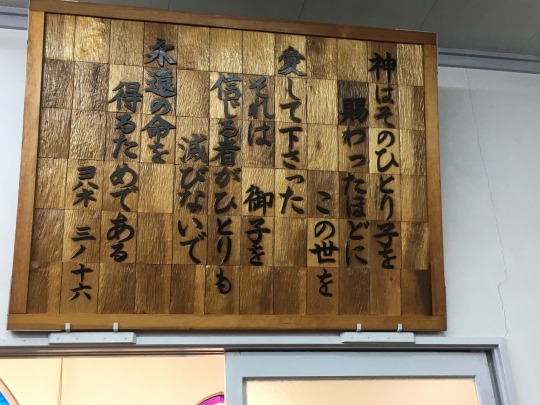 神はそのひとり子を
賜わったほどに
この世を
愛して下さった
それは 御子を
信じる者がひとりも
滅びないで
永遠の命を
得るためである
ヨハネ 三ノ十六